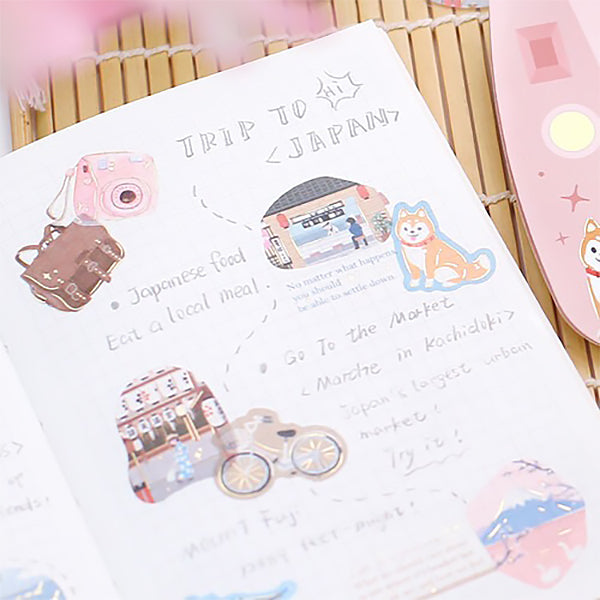 Hi
TRIP TO
<JAPAN>
• Japanese food
Eat a local meal.
No matter what happens
you should
be able to settle down.
• Go To the Market
<Marche in Kachidoki>
Japan's largest urban
market!
Try it!
Mount Fuji